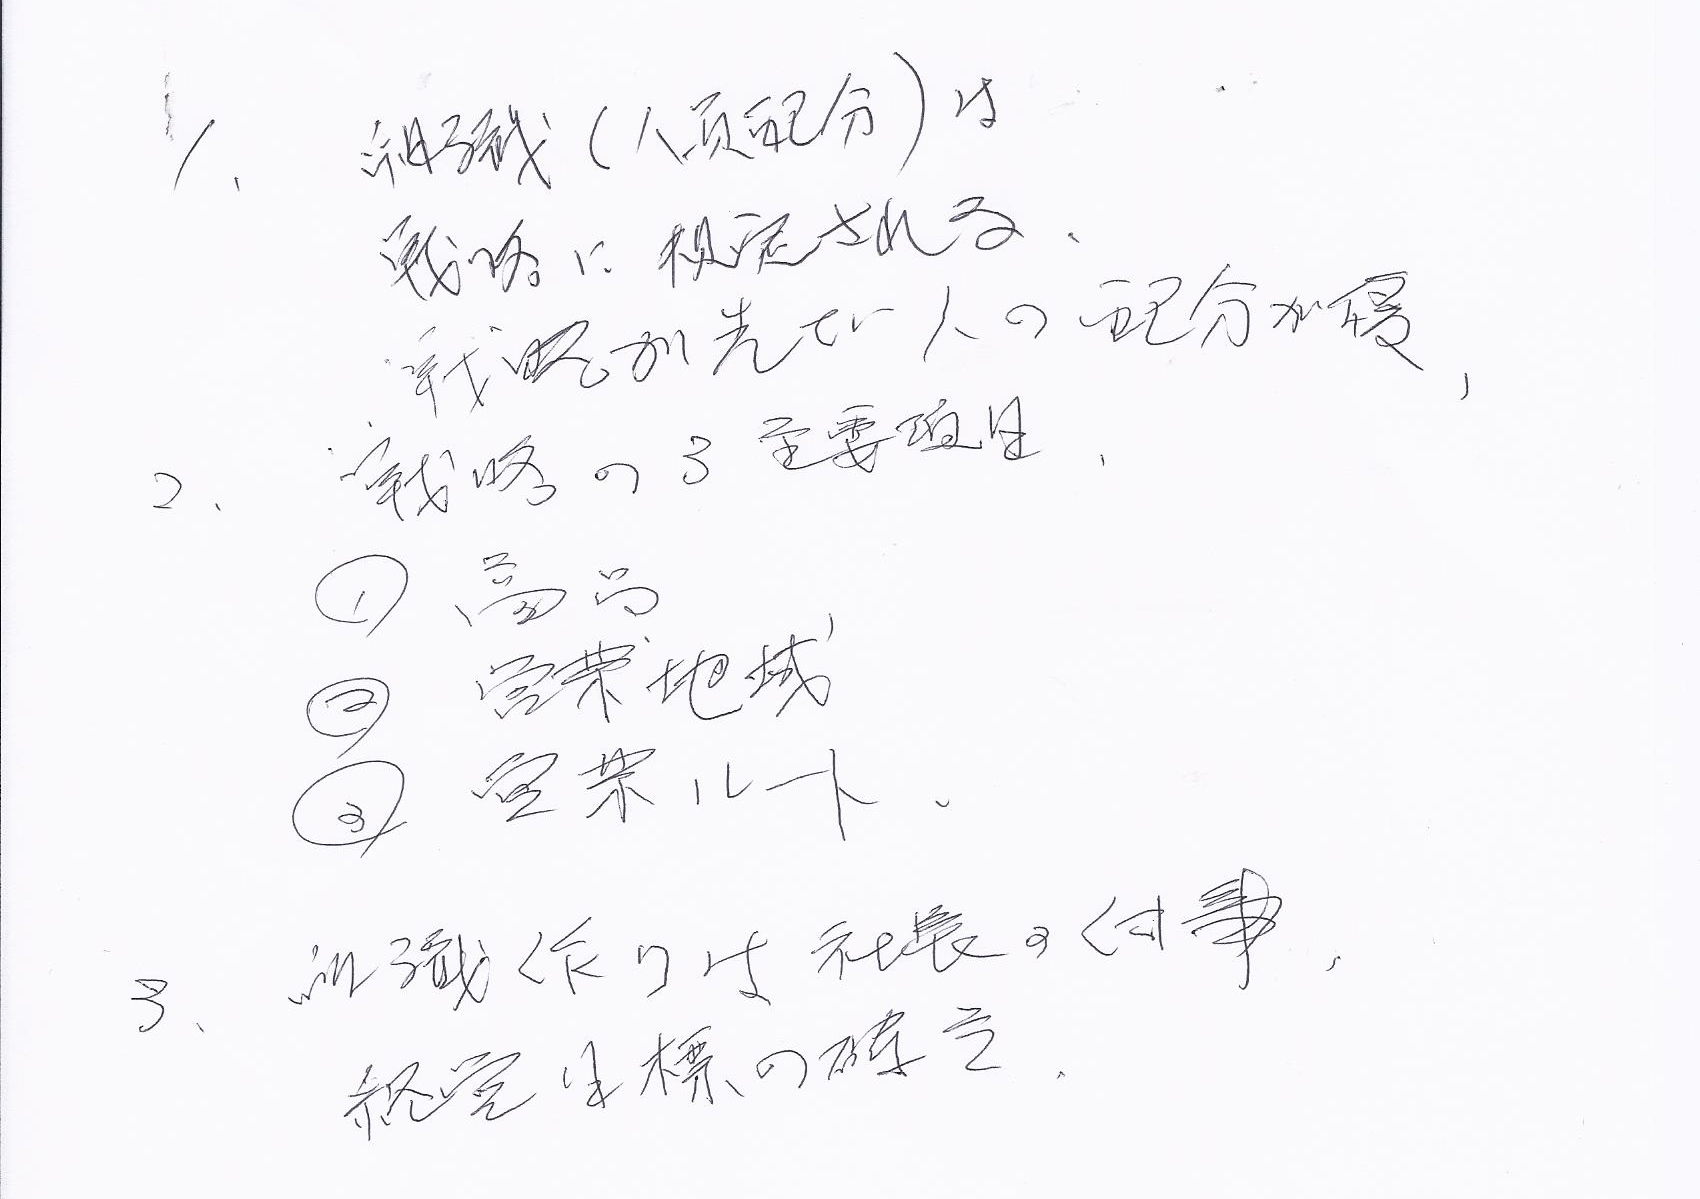 1. 組織(人員配分)は
戦略に規定される.
戦略が先で人の配分が後,
2. 戦略の3主要項目.
① 商品
② 営業地域
③ 営業ルート.
3. 組織作りは社長の仕事.
経営目標の確立.